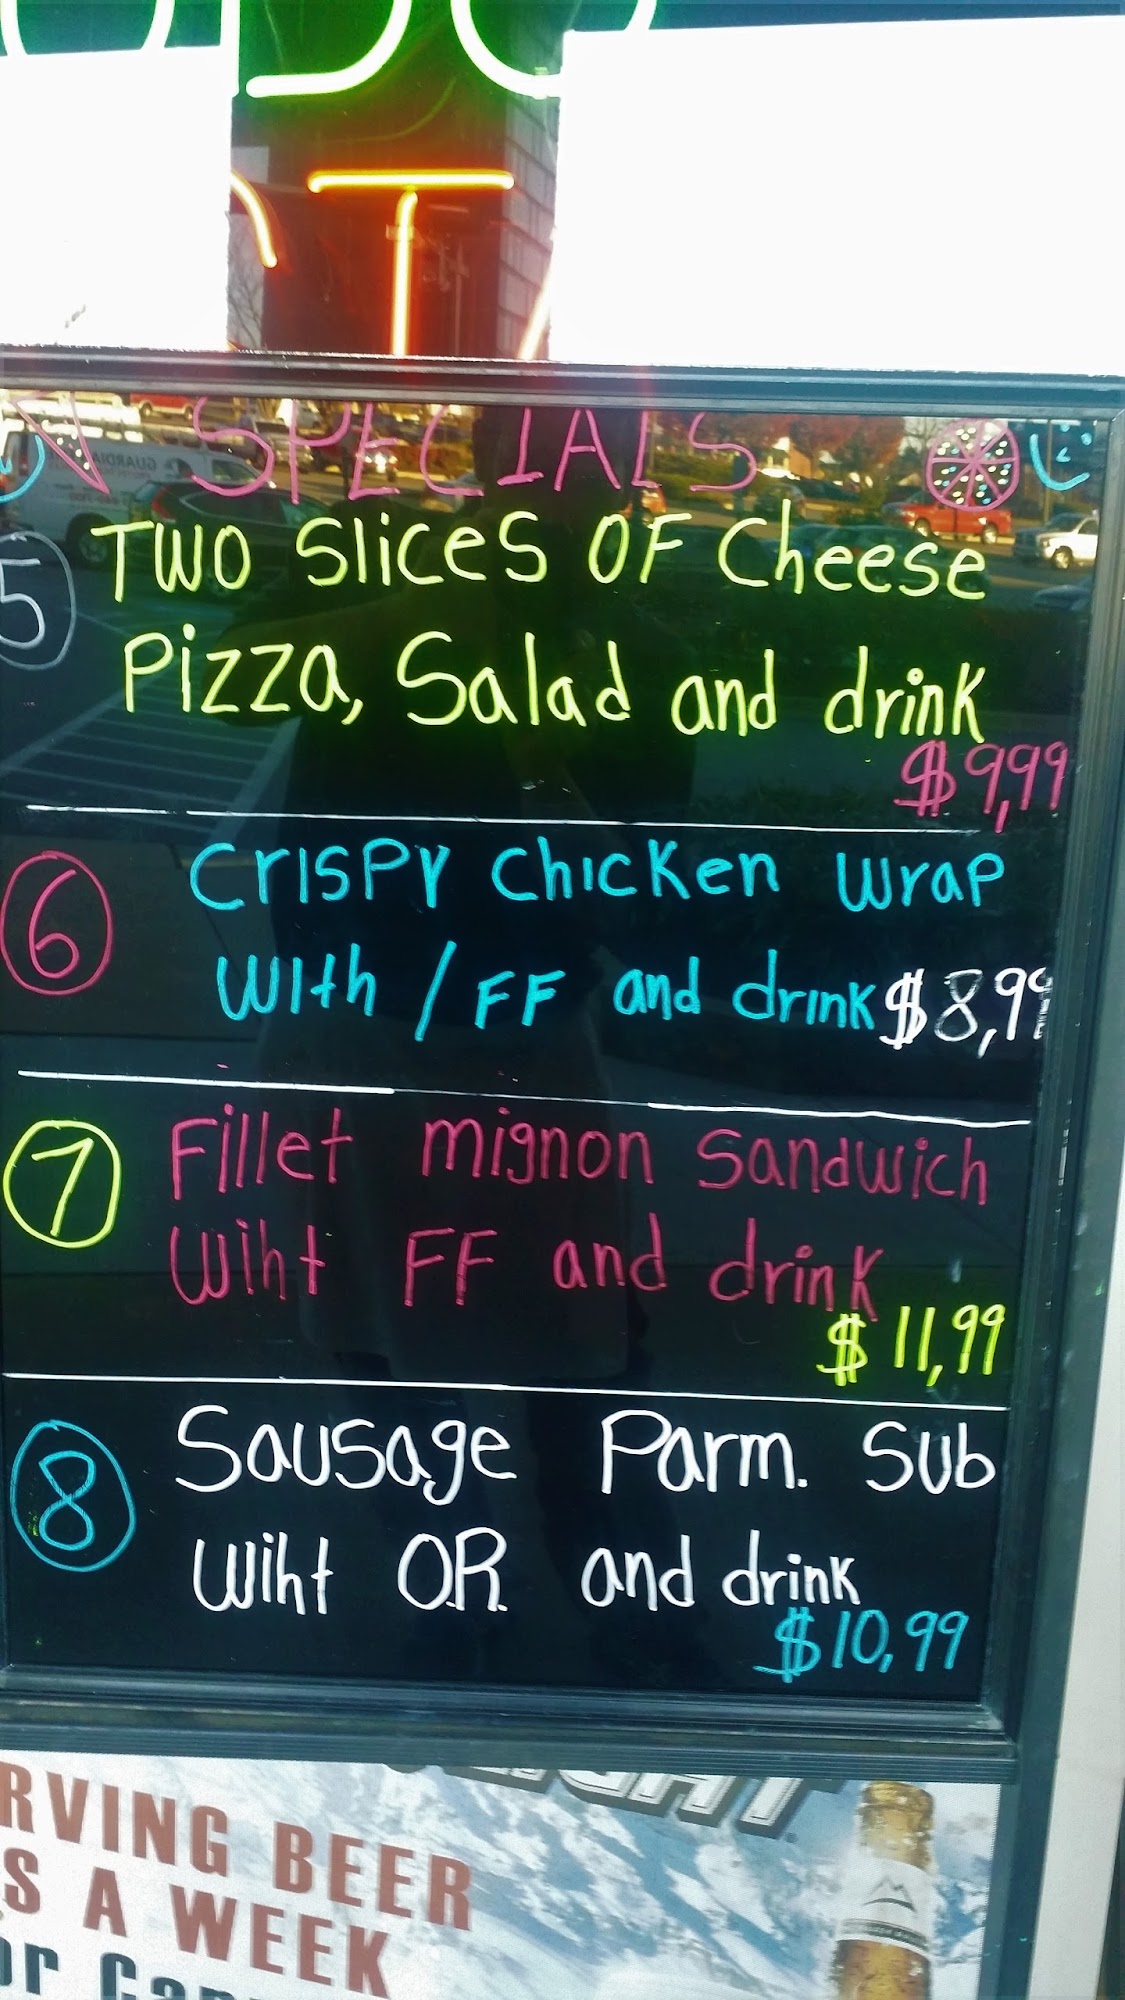 SPECIALS
5 TWO Slices OF Cheese
Pizza, Salad and drink
$9,99
6 Crispy Chicken Wrap
With / FF and drink $8,99
7 Fillet mignon Sandwich
Wiht FF and drink
$11,99
8 Sausage Parm. Sub
Wiht O.R. and drink
$10,99
RVING BEER
S A WEEK